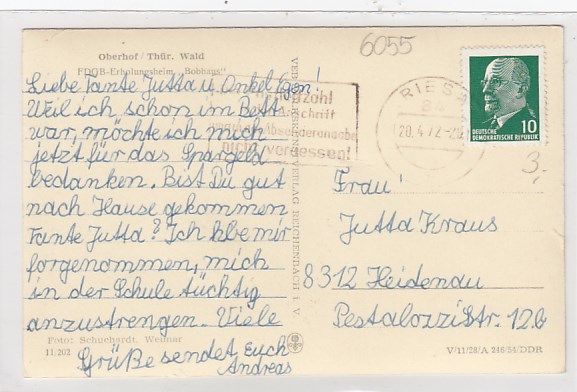 6055
Oberhof / Thür. Wald
FDGB-Erholungsheim „Bobhaus"
Liebe Tante Jutta u. Onkel Egon!
Weil ich schon im Bett
war, möchte ich mich
jetzt für das Spargeld
bedanken. Bist Du gut
nach Hause gekommen
Tante Jutta? Ich habe mir
forgenommen, mich
in der Schule tüchtig
anzustrengen. Viele
Grüße sendet Euch
Andreas
Foto: Schuchardt, Weimar
11/202
VERLAG REICHENBACH I. V.
nicht vergessen!
RIESA
20.4.72
DEUTSCHE
DEMOKRATISCHE REPUBLIK
10
3,-
Frau
Jutta Kraus
8312 Heidenau
Pestalozzistr. 12b
V/11/28/A 246/64/DDR